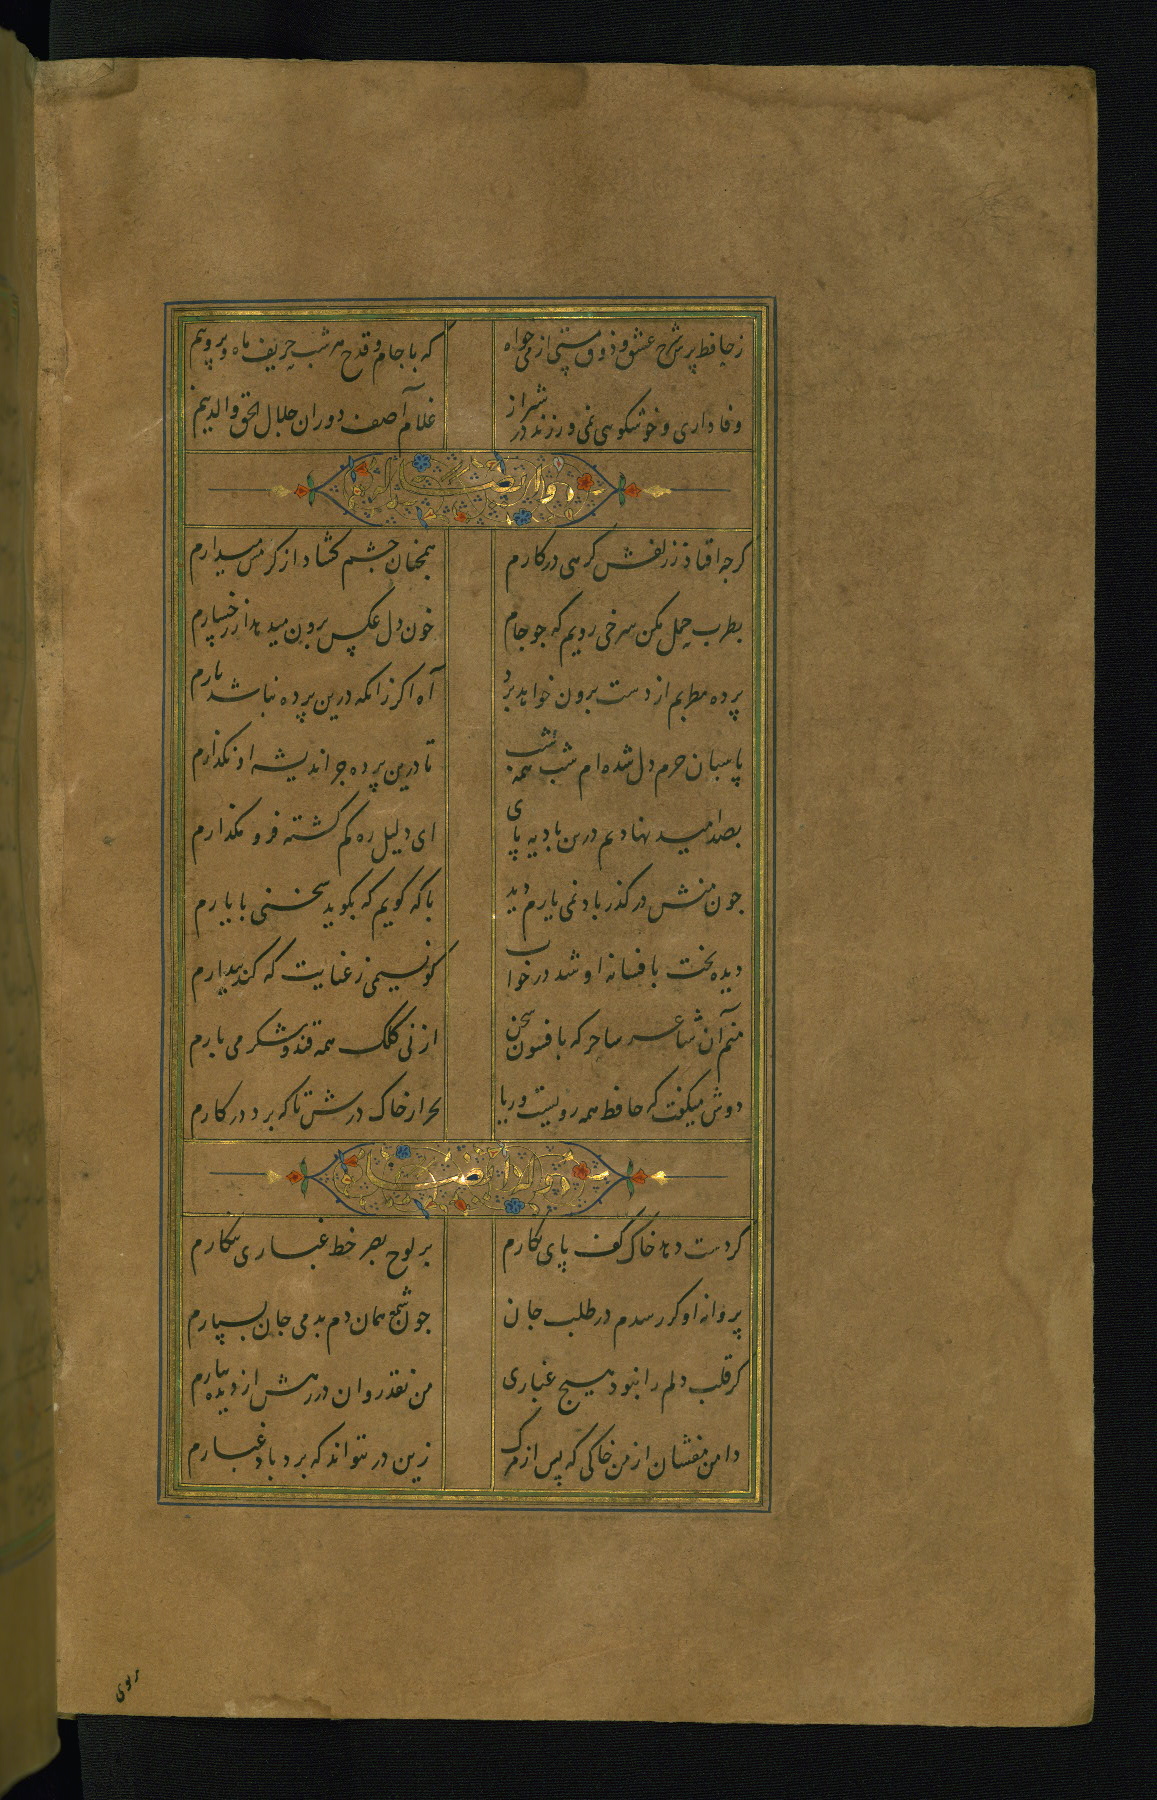 ز حافظ پرس شرح عشق و ذوق مستی از می خواه
که با جام و قدح هر شب حریف ماه و پروینم
وفاداری و خوشکویی نمی ورزند در شیراز
غلام آصف دوران جلال الحق والدینم
وله ایضا
کرجه افتاذ ز زلفش کرهی در کارم
همجنان جشم کشاد از کرمش میدارم
بطرب حمل مکن سرخی رویم که جو جام
خون دل عکس برون میدهد از رخسارم
پرده مطربم از دست برون خواهد برد
آه اکر زانکه درین پرده نباشد بارم
پاسبان حرم دل شده ام شب همه شب
تا درین پرده جز اندیشه او نکذارم
بصد امید نهادیم درین بادیه پای
ای دلیل ره کم کشته فرو مکذارم
جون منش در کذر باد نمی یارم دید
با که کویم که بکوید سخنی با یارم
دیده بخت بافسانه او شد در خواب
کو نسیمی ز عنایت که کند بیدارم
منم آن شاعر ساحر که بافسون سخن
از نی کلک همه قند و شکر می بارم
دوش میکفت که حافظ همه رویست و ریا
بجز از خاک درش تا که برد در کارم
وله ایضا
کر دست دهد خاک کف پای نکارم
بر لوح بصر خط غباری بنکارم
پروانه او کر رسدم در طلب جان
جون شمع همان دم بدمی جان بسپارم
کر قلب دلم را نبود هیج غباری
من نقد روان در رهش از دیده ببارم
دامن مفشان از من خاکی که پس از مرک
زین در نتواند که برد باد غبارم